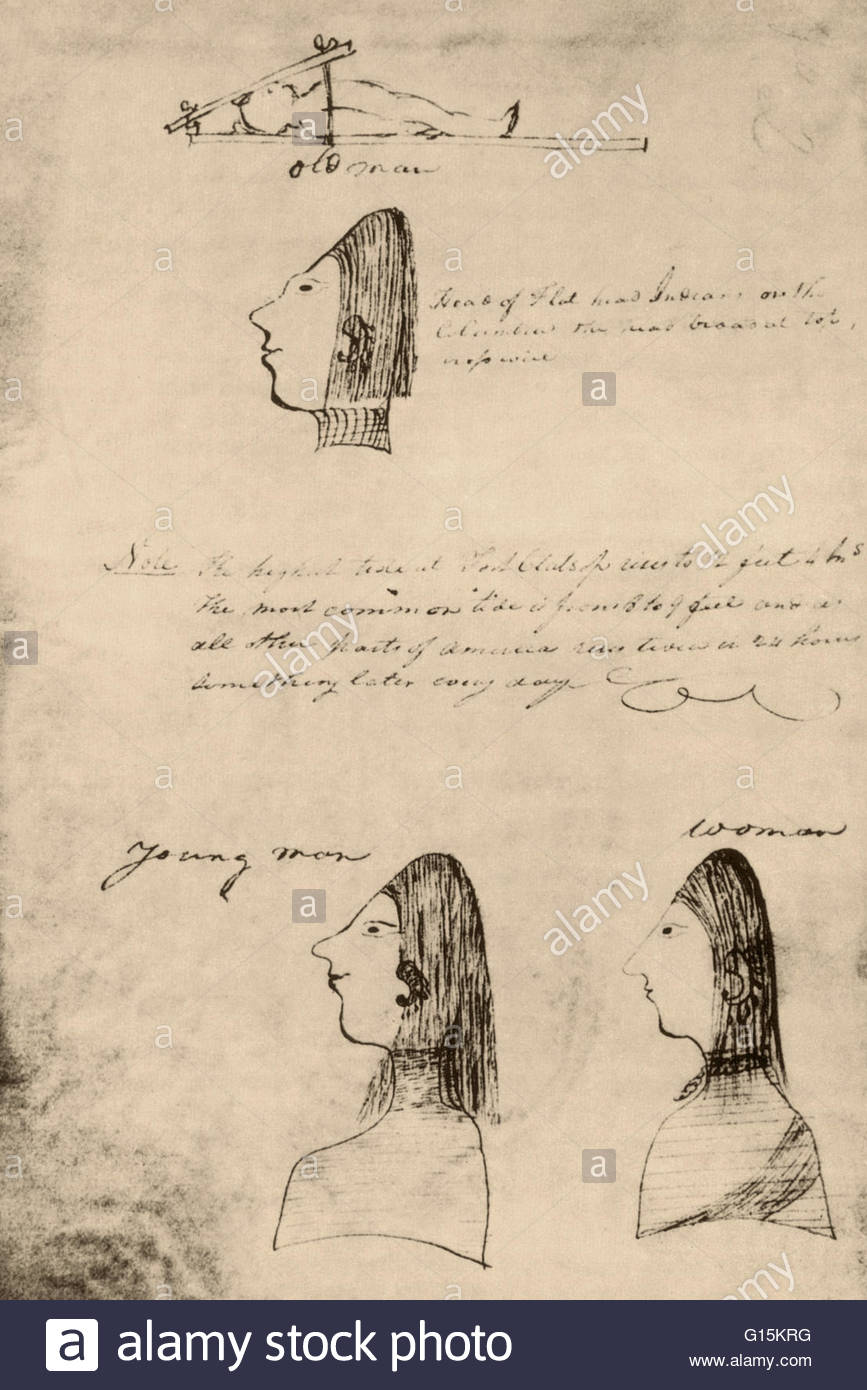 old man
Head of Flat head Indians on the
Columbia the head broad at top,
crosswise
Note The highest tide at Fort Clatsop rises to 12 feet 4 Ins
The most common tide is from 8 to 9 feet and as
all other parts of America rises twice in 24 hours
something later every day
young man
woman
alamy stock photo
G15KRG
www.alamy.com